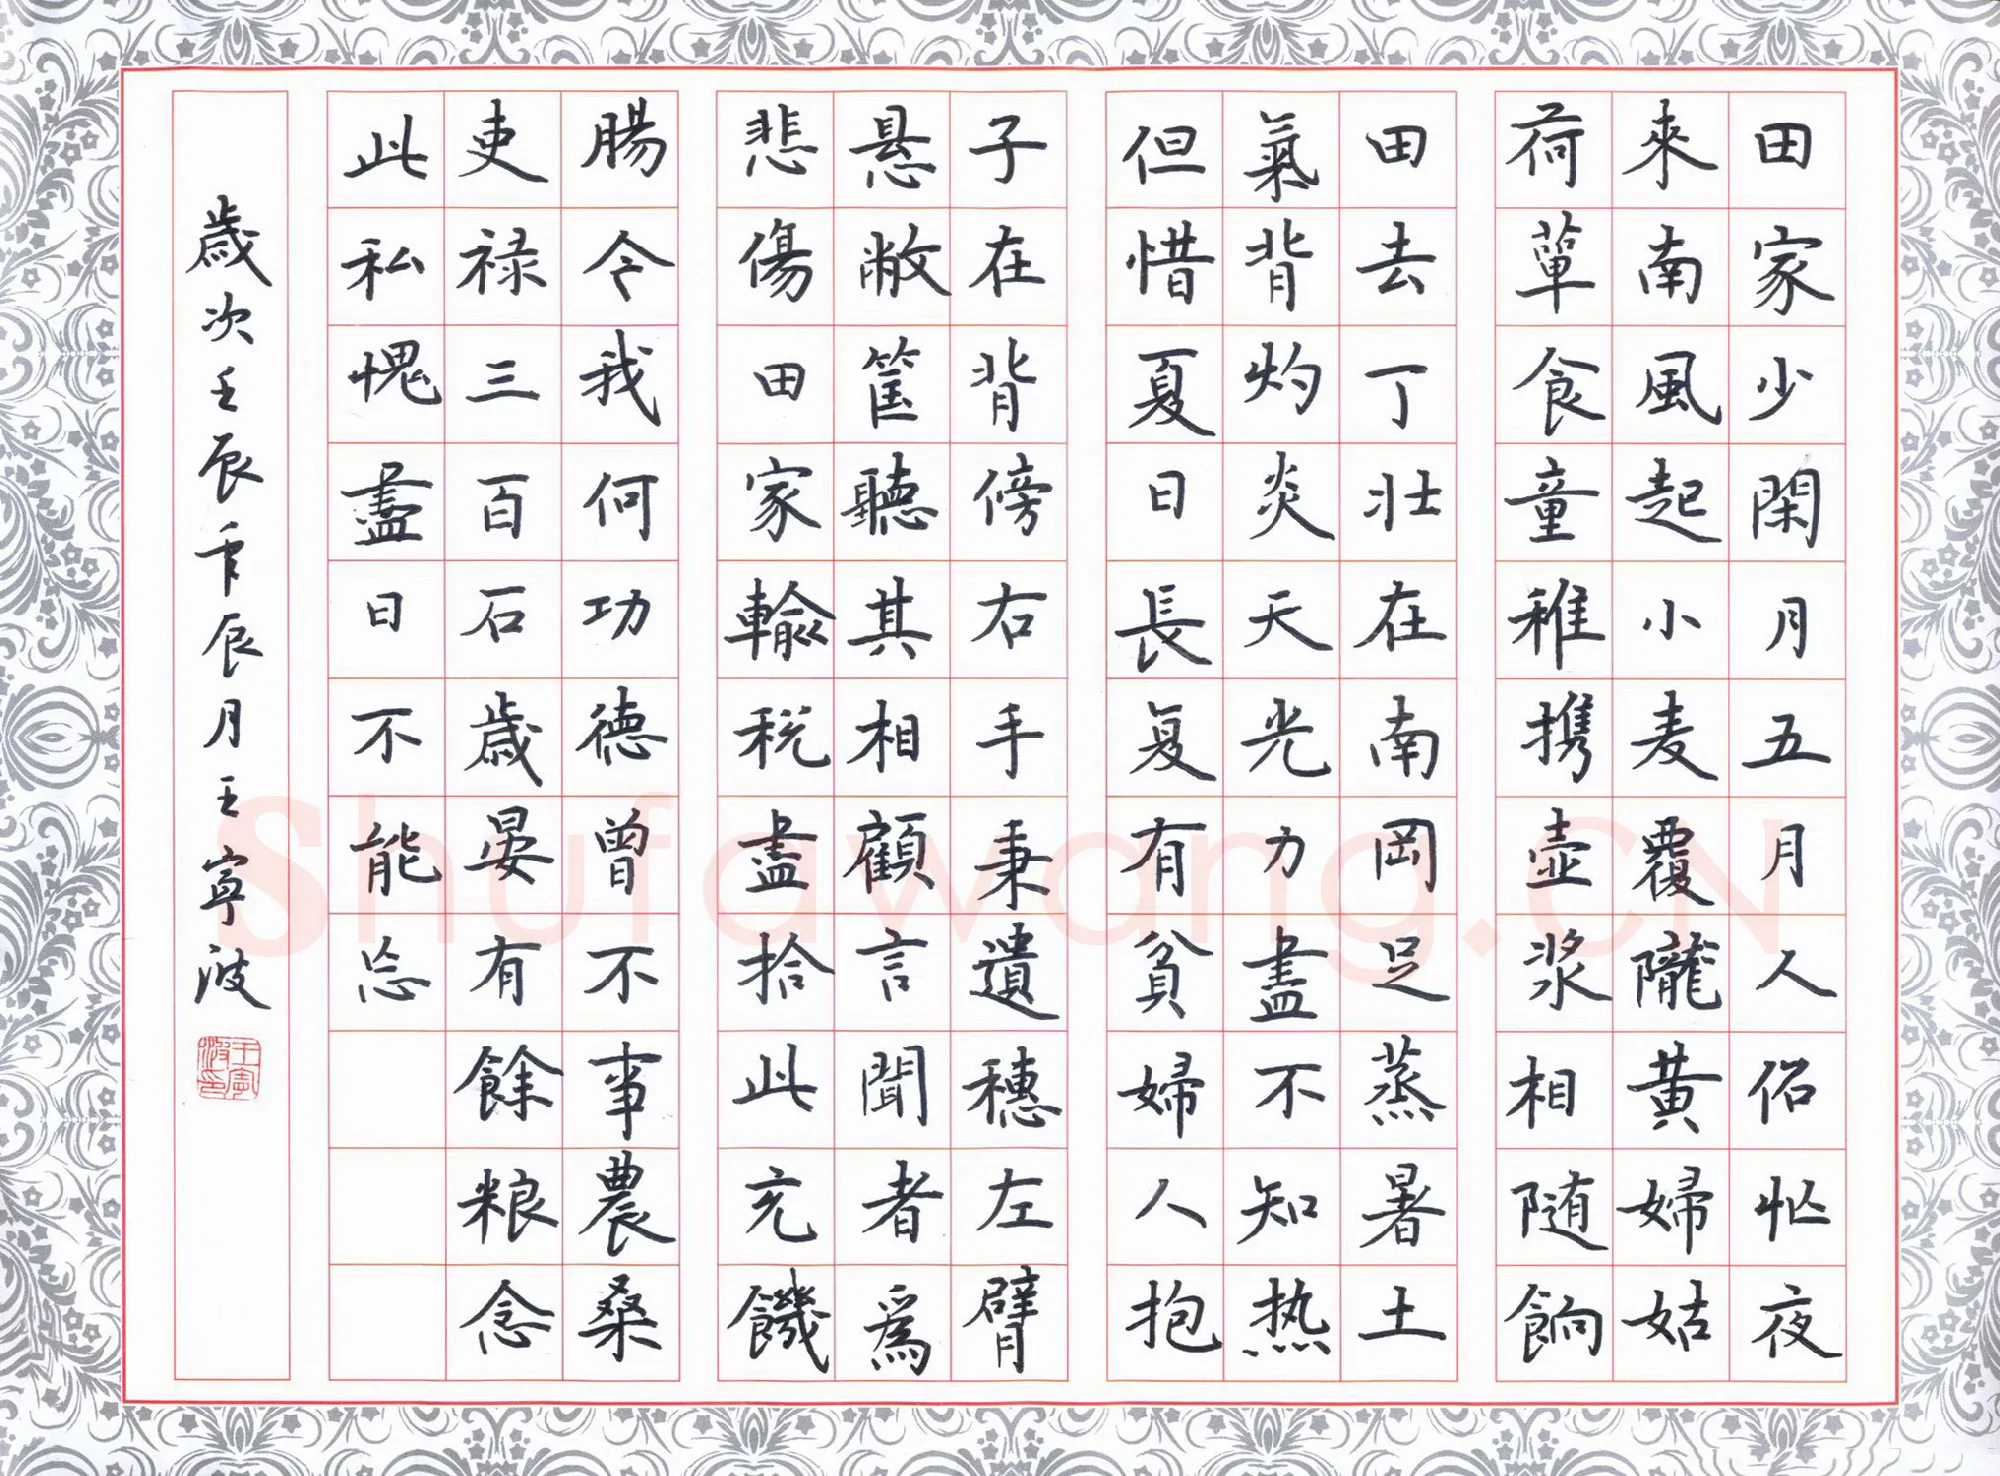 田家少閑月五月人俗忙夜
來南風起小麦覆隴黄婦姑
荷簞食童稚携壺浆相随餉
田去丁壮在南岡足蒸暑土
氣背灼炎天光力盡不知热
但惜夏日長复有貧婦人抱
子在背傍右手秉遺穗左臂
悬敝筐聽其相顧言聞者爲
悲傷田家輸税盡拾此充饑
腸今我何功德曾不事農桑
吏禄三百石歳晏有餘粮念
此私愧盡日不能忘
歳次壬辰年辰月王寧波
王寧波印
Shufawang.CN